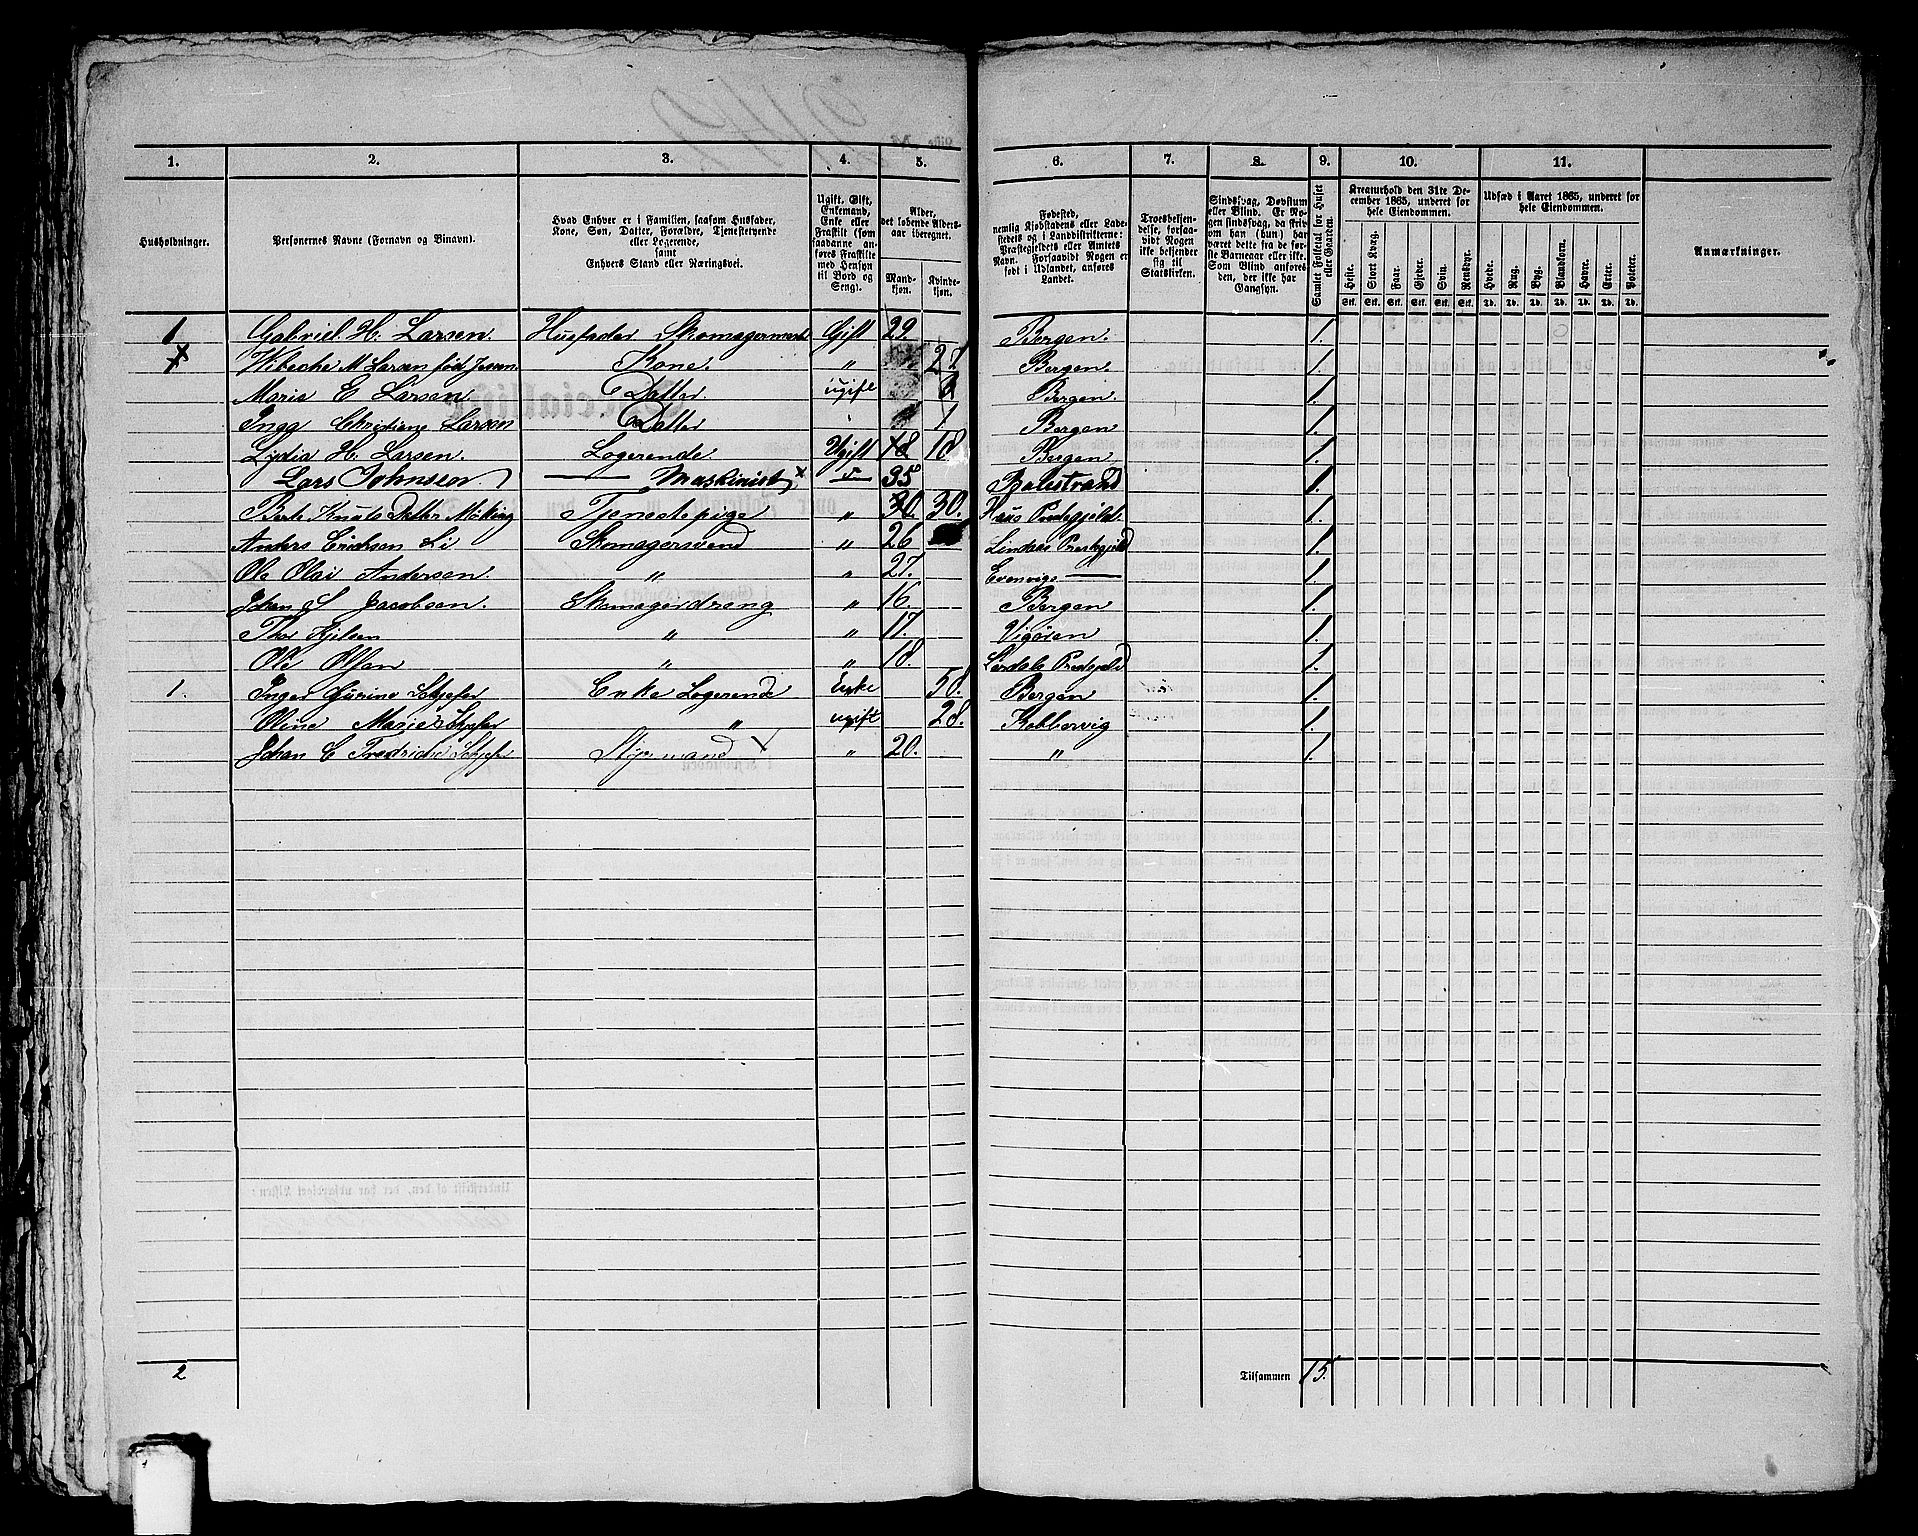 1. 2. 3. 4. 5. 6. 7. 8. 9. 10. 11.
Husholdninger.
Personernes Navne (Fornavn og Binavn).
Hvad Enhver er i Familien, saasom Husfader,
Kone, Søn, Datter, Forældre, Tjenestetyende
eller Logerende,
samt
Enhvers Stand eller Næringsvei.
Ugift, Gift,
Enkemand,
Enke eller
Fraskilt (som
saadanne an-
føres Fraskilte
med Hensyn
til Bord og
Seng).
Alder,
det løbende Alders-
aar iberegnet.
Mand-
kjøn.
Kvinde-
kjøn.
Fødested,
nemlig Kjøbstadens eller Lade-
stedets og i Landdistrikterne:
Præstegjeldets eller Amtets
Navn. Forsaavidt Nogen er
født i Udlandet, anføres
Landet.
Troesbekjen-
delse, forsaa-
vidt Nogen
ikke bekjender
sig til
Statskirken.
Sindssvag, Døvstum
eller Blind. Er No-
gen sindssvag, da skriv
om han (hun) har
været dette fra de før-
ste Barneaar eller ikke.
Som Blind anføres
den, der ikke har
Gangsyn.
Samlet Folketal for Huset
eller Gaarden.
Kreaturhold den 31te De-
cember 1865, underet for
hele Eiendommen.
Heste. Stort Kvæg. Faar. Gjeder. Svin. Rensdyr.
Stk. Stk. Stk. Stk. Stk. Stk.
Udsæd i Aaret 1865, underet for
hele Eiendommen.
Hvede. Rug. Byg. Blandkorn. Havre. Erter. Poteter.
Td. Td. Td. Td. Td. Td. Td.
Anmærkninger.
1 Gabriel H. Larsen. Husfader Skomagermest Gift 29. Bergen. 1.
x Wibeche M Larsen fød Jessen Kone. " 27 Bergen. 1.
Marie E Larsen Datter ugift Bergen. 1.
Inga Christiane Larsen Datter 1 Bergen 1.
Lydia H. Larsen. Logerende Ugift 18 18 Bergen 1.
Lars Johnsen — Maskinist x 35 Balestrand 1.
Berte Knuts Datter Tjenestepige " 30. 30. Haus Prestegjeld. 1.
Anders Ericksen Li Skomagersvend " 26 Lindaas Prestegjeld 1.
Ole Olai Andersen. " " 27. Evenvigs — 1.
Johan S Jacobsen. Skomagerdreng " 16. Bergen 1.
Thor " " 17. Vigøren 1.
Ole Olsen " " 18. Prestegjeld 1.
1. Inger Gurine Schjefer Enke Logerende Enke 58. Bergen 1.
Oline Marie Schjefer " ugift 28. Kobbervig 1.
Johan C Fredrichs Schjefer Styrmand " 20. " 1.
2 Tilsammen 15.